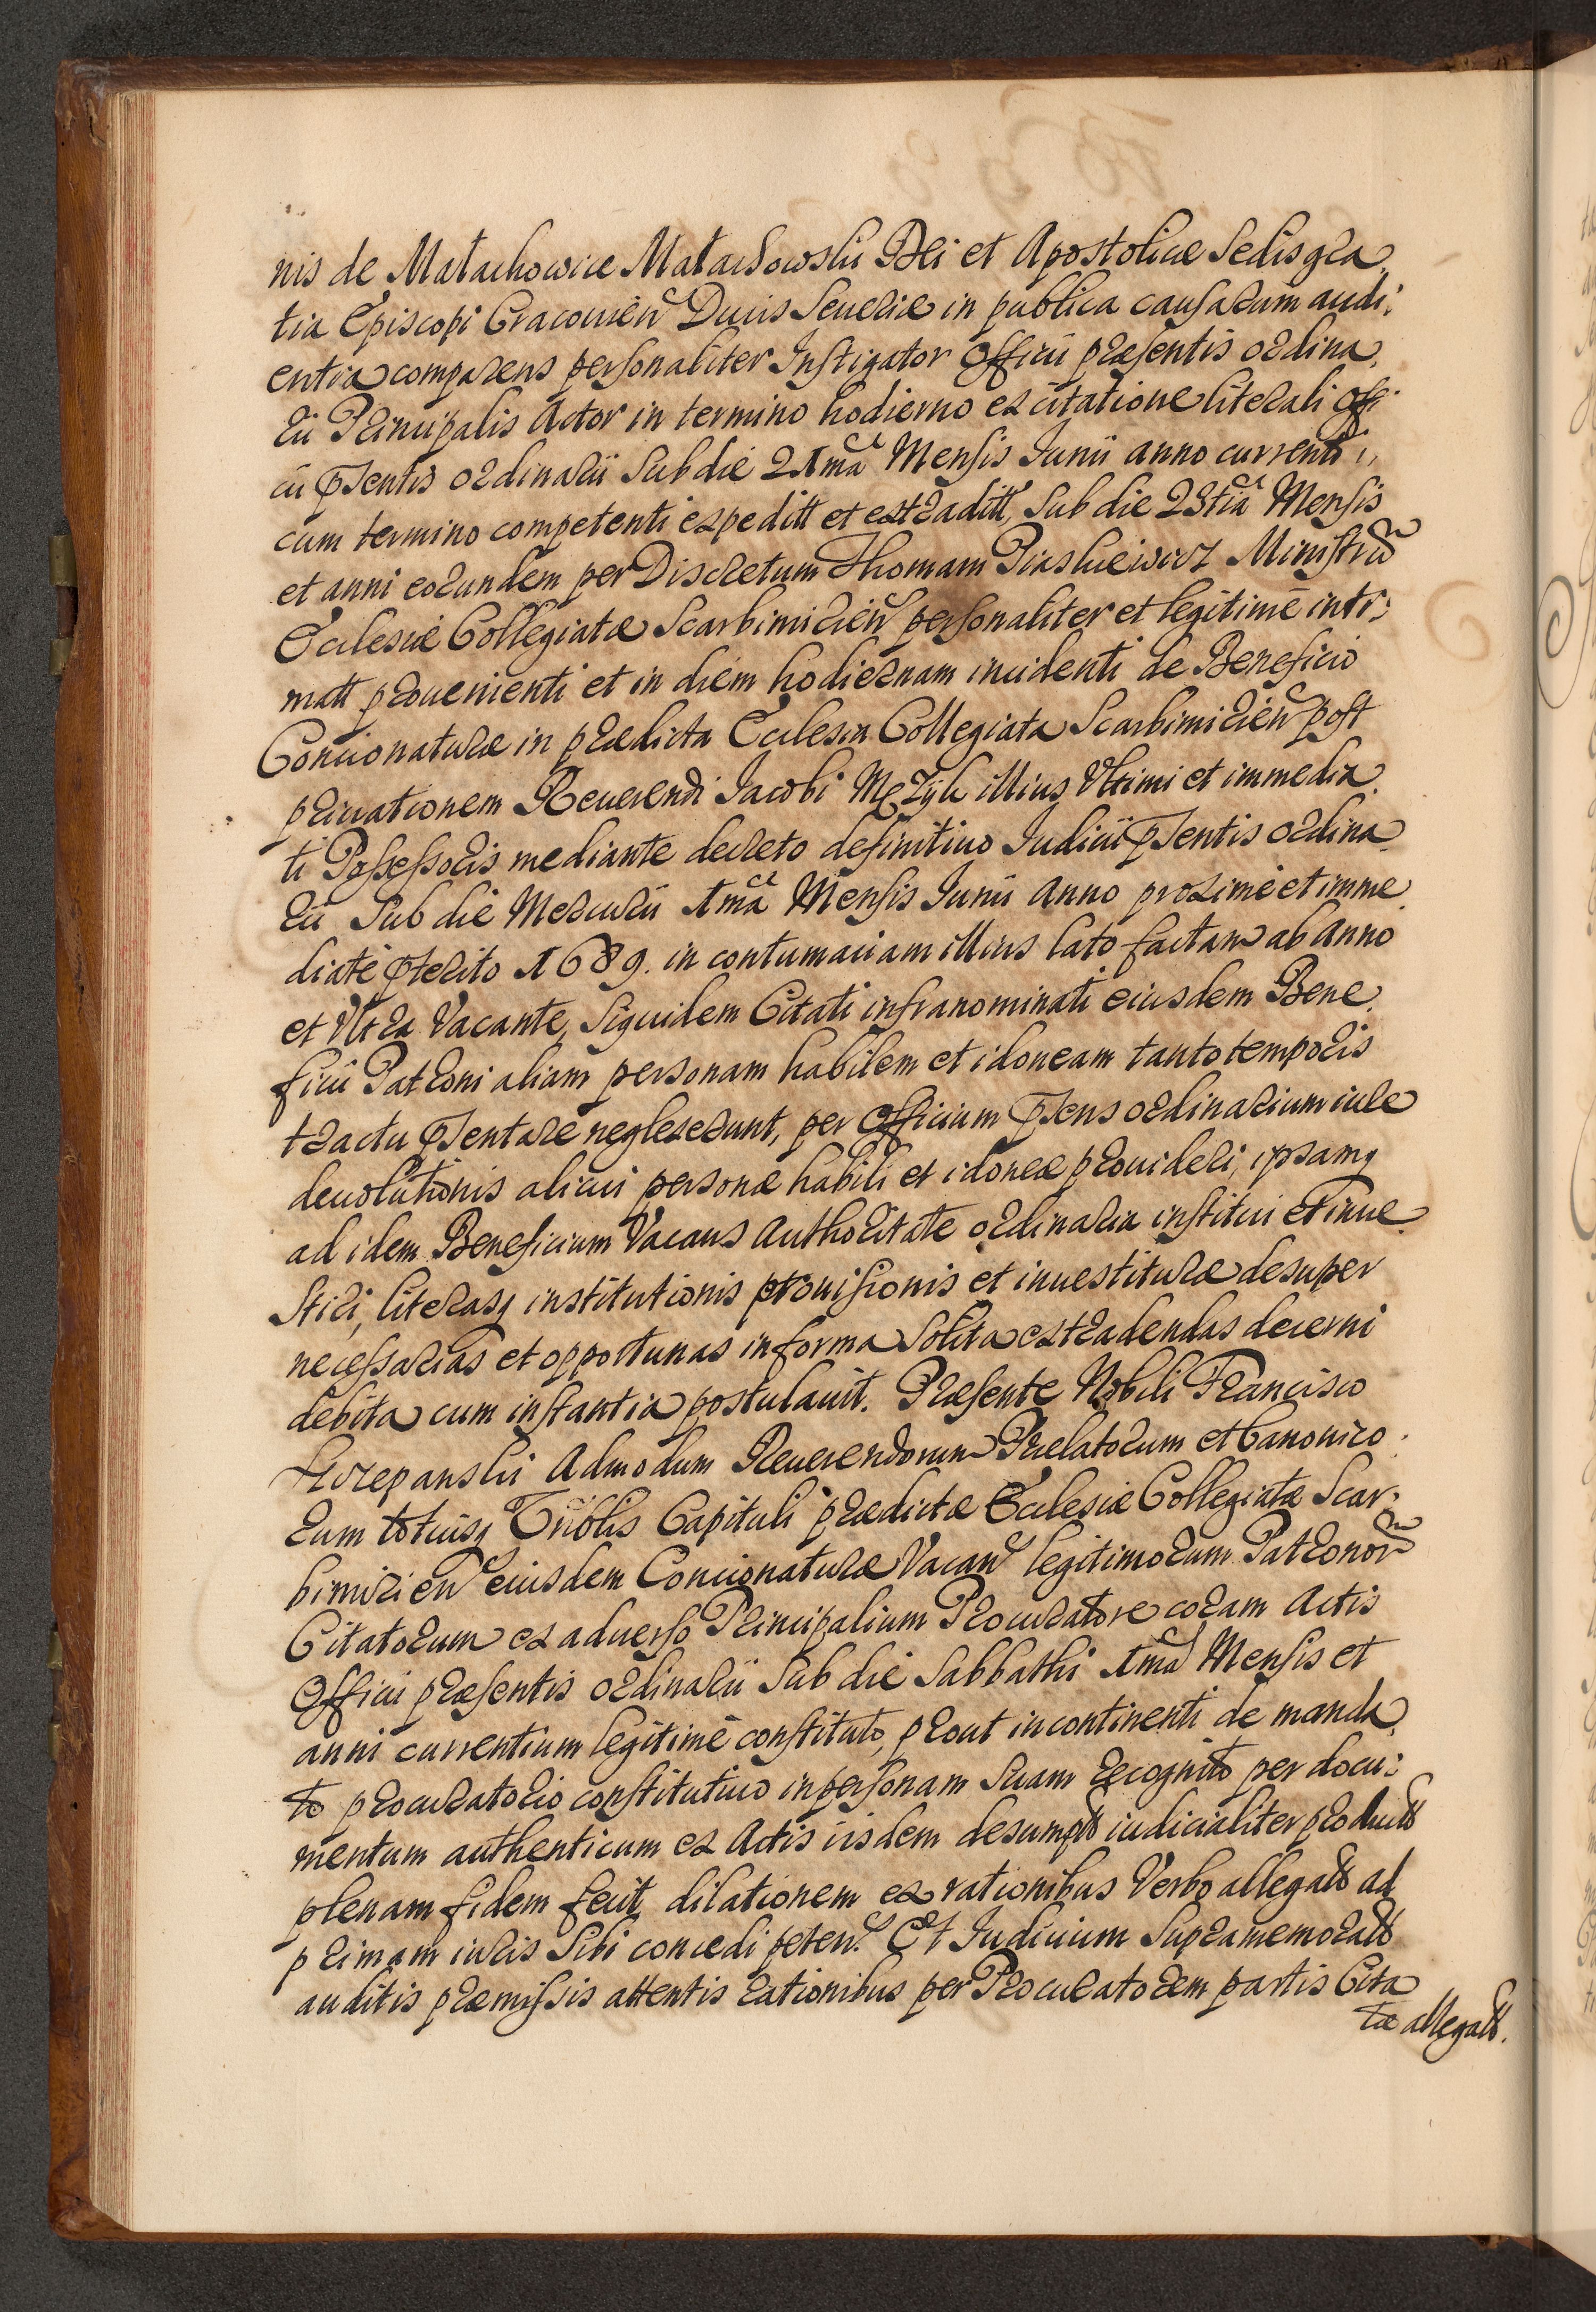 nis de Małachowice Małachowski Dei et Apostolicæ Sedis gra,
tia Episcopi Cracovień Ducis Seueriæ in publica causarum audi:
entia comparens personaliter Instigator Officii præsentis ordina,
rii Principalis Actor in termino hodierno ex citatione literali offi
cii pñtentis ordinarii Sub die 21ma Mensis Junii anno currenti,
cum termino competenti expeditt et extraditt, Sub die 23tia Mensis
et anni eorundem per Discretum Thomam Piaskiewicz Ministrũ
Ecclesiæ Collegiatæ Scarbimirień personaliter et legitimè inti,
matt prouenienti et in diem hodiernam incidenti de Beneficio
Concionaturæ in prædicta Ecclesia Collegiata Scarbimirień post
priuationem Reuerendi Jacobi Męzyk illius Vltimi et immedia,
ti Possessoris mediante decreto definitiuo Iudicii pñtentis ordina,
rii Sub die Mercurii 1ma Mensis Junii Anno proximè et imme,
diatè pręterito 1689. in contumaciam illius lato factam ab Anno
et Vltra Vacante, Siquidem Citati infranominati eiusdem Bene,
ficii Patroni aliam personam habilem et idoneam tanto temporis
tractu pñtentare neglexerunt, per Officium pñtens ordinarium iure
deuolutionis alicui personæ habili et idoneæ prouideri, ipsamq
ad idem Beneficium Vacans Authoritate ordinaria institui et inue,
Stiri, literasq institutionis prouisionis et inuestituræ desuper
necessarias et opportunas in forma Solita extradendas decerni
debita cum instantia postulauit. Præsente Nobili Francisco
Szczepanski Admodum Reuerendorum Prælatorum et Canonico,
rum totiusq Veñblis Capituli prædictæ Ecclesiæ Collegiatæ Scar:
bimirień eiusdem Concionaturæ Vacań legitimorum Patronorũ
Citatorum ex aduerso Principalium Procuratore coram Actis
Officii præsentis ordinarii Sub die Sabbathi 1ma Mensis et
anni currentium legitimè constituto, prout incontinenti de manda,
to procuratorio constitutiuo in personam Suam recognito per docu:
mentum authenticum ex Actis iisdem desumptt iudicialiter productt
plenam fidem fecit dilationem ex rationibus Verbo allegatt ad
primam iuris Sibi concedi peteń. Et Iudicium Supramemoratt
auditis præmissis attentis rationibus per Procuratorem partis Cita
tæ allegatt.